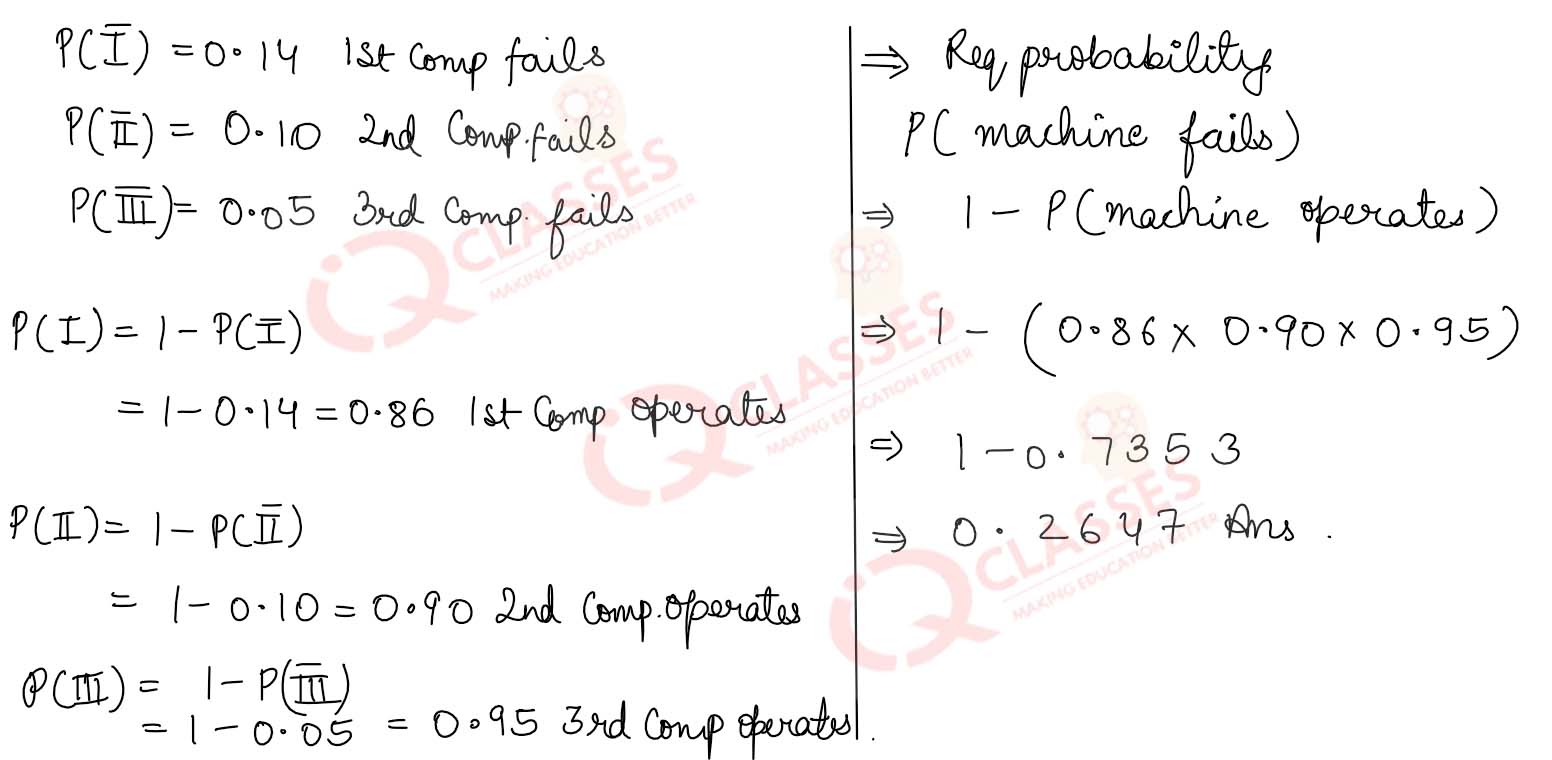 P(I̅) = 0.14 1st Comp fails
P(I̅I̅) = 0.10 2nd Comp. fails
P(I̅I̅I̅) = 0.05 3rd Comp. fails
P(I) = 1 - P(I̅)
= 1 - 0.14 = 0.86 1st Comp operates
P(II) = 1 - P(I̅I̅)
= 1 - 0.10 = 0.90 2nd Comp. operates
P(III) = 1 - P(I̅I̅I̅)
= 1 - 0.05 = 0.95 3rd Comp operates.
⇒ Req probability
P( machine fails)
⇒ 1 - P(machine operates)
⇒ 1 - (0.86 × 0.90 × 0.95)
⇒ 1 - 0.7353
⇒ 0.2647 Ans.
IQ CLASSES
MAKING EDUCATION BETTER
IQ CLASSES
MAKING EDUCATION BETTER
IQ CLASSES
MAKING EDUCATION BETTER